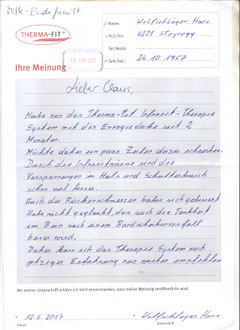 THERMA-FIT®
Name: Wohlschläger Hans
PLZ/Ort: 4221 Steyregg
Tel/Mobil:
Geb.Dat.: 24.10.1957
Ihre Meinung
Lieber Claus,
Habe nun das Therma-Fit Infrarot-Therapie
System mit der Energiedecke seit 2
Monaten.
Möchte daher ein paar Zeilen dazu schreiben.
Durch die Infrarotwärme sind die
Verspannungen im Hals und Schulterbereich
schon viel besser.
Auch die Rückenschmerzen haben sich gebessert
Habe nicht geglaubt, dass auch die Taubheit
im Bein nach einem Bandscheibenvorfall
besser wird.
Daher kann ich das Therapie System nach
Erfahrung nur weiter empfehlen
Mit meiner Unterschrift erkläre ich mich einverstanden, dass meine Meinung veröffentlicht wird.
12.6.2017 Wohlschläger Hans